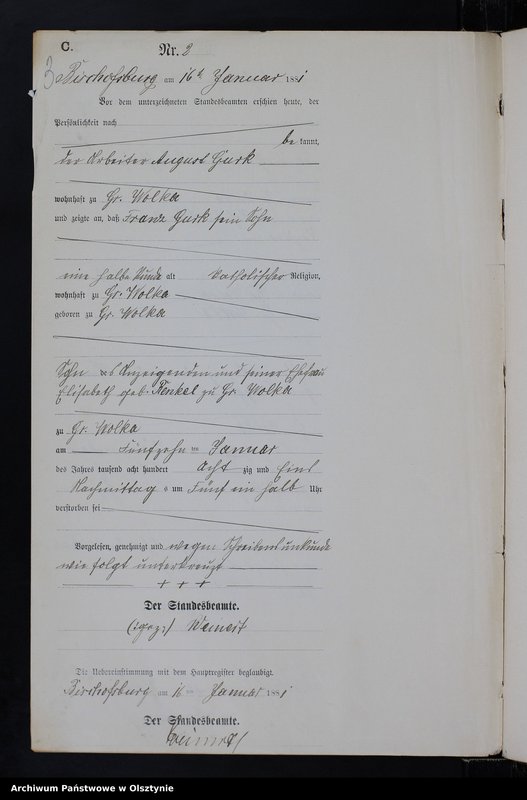 C.
Nr. 3
3
Bischofsburg am 16ten Januar 1881
Vor dem unterzeichneten Standesbeamten erschien heute, der
Persönlichkeit nach
be kannt,
der Arbeiter August Gurk
wohnhaft zu Gr. Wolka
und zeigte an, daß Franz Gurk sein Sohn
eine halbe Stunde alt katholischer Religion,
wohnhaft zu Gr. Wolka
geboren zu Gr. Wolka
Sohn des Anzeigenden und seiner Ehefrau
Elisabeth geb. Fenkel zu Gr. Wolka
zu Gr. Wolka
am Fünfzehnten Januar
des Jahres tausend acht hundert acht zig und Eins
Nachmittags um Fünf ein halb Uhr
verstorben sei
Vorgelesen, genehmigt und wegen Schreibensunkunde
wie folgt unterkreuzt
+ + +
Der Standesbeamte.
(:gez:) Weinert
Die Uebereinstimmung mit dem Hauptregister beglaubigt.
Bischofsburg am 16ten Januar 1881
Der Standesbeamte.
Weinert
Archiwum Państwowe w Olsztynie